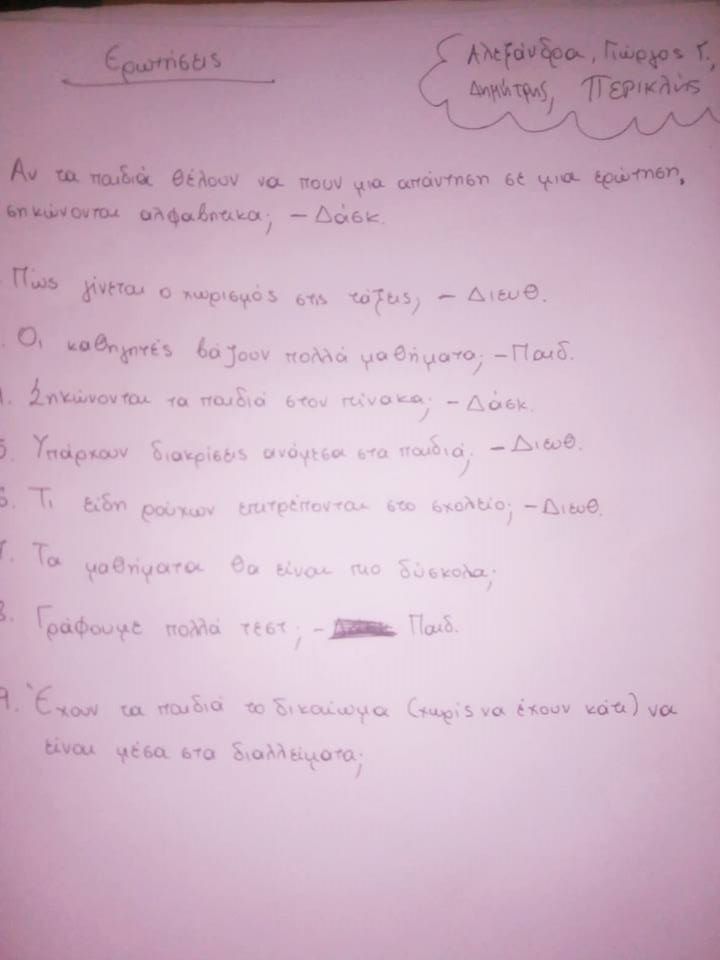 Ερωτήσεις
Αλεξάνδρα, Γιώργος Γ.,
Δημήτρης, ΠΕΡΙΚΛής
Αν τα παιδιά θέλουν να πουν μια απάντηση σε μια ερώτηση,
σηκώνονται αλφαβητικα; - Δάσκ.
Πώς γίνεται ο χωρισμός στις τάξεις; - Διευθ.
Οι καθηγητές βάζουν πολλά μαθήματα; - Παιδ.
4. Σηκώνονται τα παιδιά στον πίνακα; - Δάσκ.
5. Υπάρχουν διακρίσεις ανάμεσα στα παιδιά; - Διευθ.
6. Τι είδη ρούχων επιτρέπονται στο σχολείο; - Διευθ.
7. Τα μαθήματα θα είναι πιο δύσκολα;
8. Γράφουμε πολλά τεστ; - Παιδ.
9. Έχουν τα παιδιά το δικαίωμα (χωρίς να έχουν κάτι) να
είναι μέσα στα διαλλείματα;